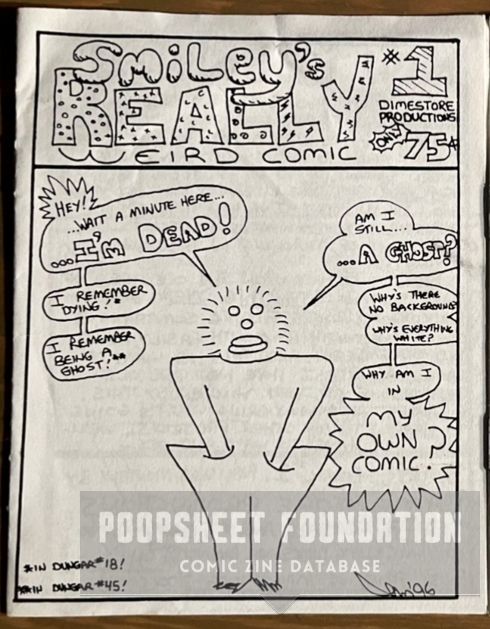 Smiley's
REALLY
WEIRD COMIC
#1
DIMESTORE
PRODUCTIONS
ONLY
75¢
HEY!
...WAIT A MINUTE HERE...
...I'M DEAD!
I REMEMBER
DYING!*
I REMEMBER
BEING A
GHOST!**
AM I
STILL...
...A GHOST?
WHY'S THERE
NO BACKGROUND?
WHY'S EVERYTHING
WHITE?
WHY AM I
IN
MY
OWN
COMIC?
*IN DUNGAR #18!
**IN DUNGAR #45!
'96
POOPSHEET FOUNDATION
COMIC ZINE DATABASE